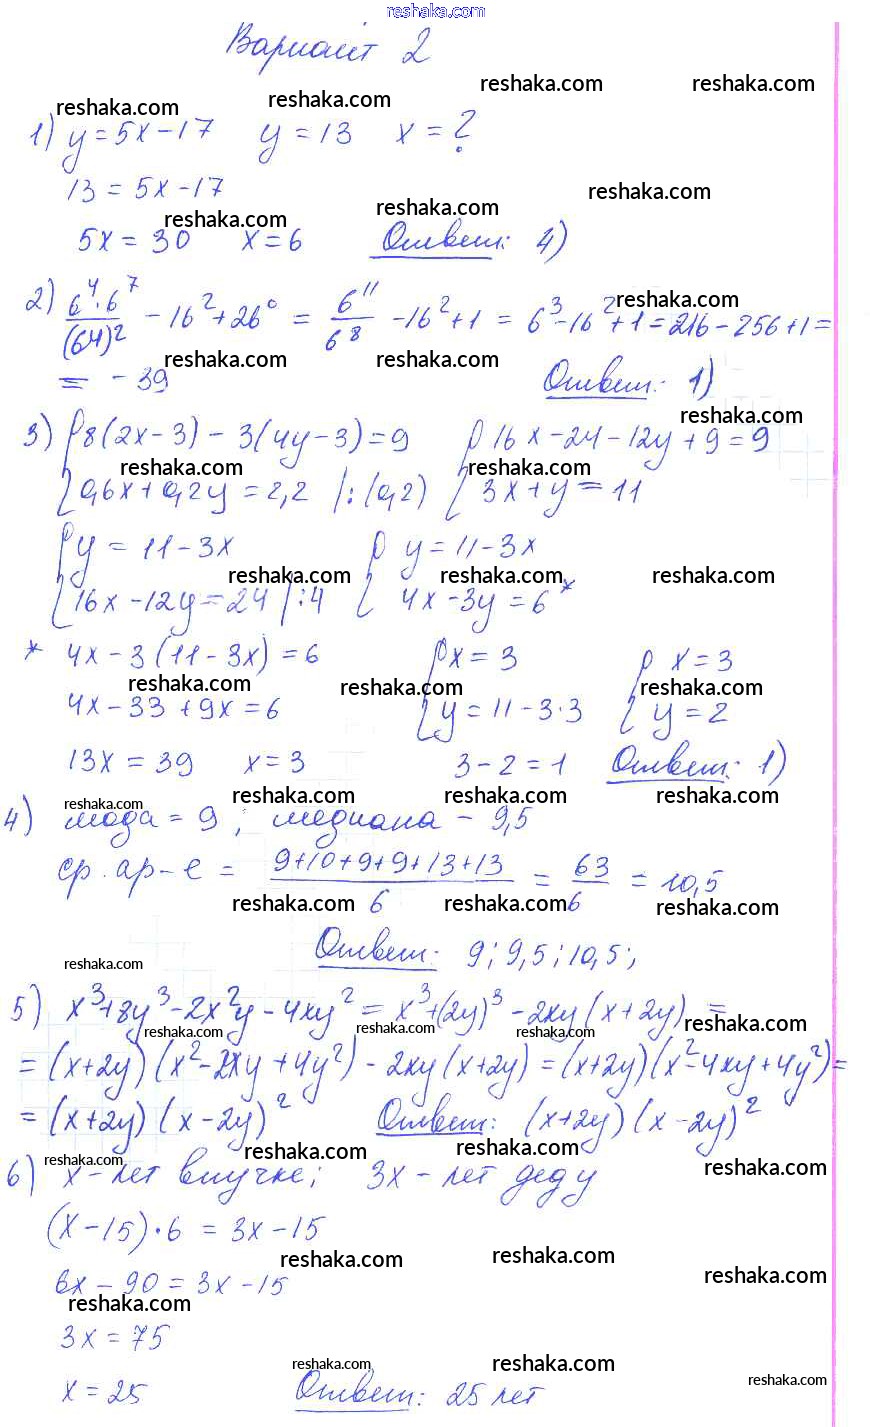 reshaka.com
Вариант 2
reshaka.com reshaka.com reshaka.com reshaka.com
1) y = 5x – 17 y = 13 x = ?
13 = 5x – 17 reshaka.com
reshaka.com reshaka.com
5x = 30 x = 6 Ответ: 4)
2) 6⁴·6⁷/(6⁴)² – 16² + 26⁰ = 6¹¹/6⁸ – 16² + 1 = 6³ – 16² + 1 = 216 – 256 + 1 =
reshaka.com
reshaka.com reshaka.com
= – 39 Ответ: 1)
reshaka.com
3) { 8(2x – 3) – 3(4y – 3) = 9 { 16x – 24 – 12y + 9 = 9
reshaka.com reshaka.com
0,6x + 0,2y = 2,2 |:(0,2) 3x + y = 11
{ y = 11 – 3x { y = 11 – 3x
reshaka.com reshaka.com reshaka.com
16x – 12y = 24 |:4 4x – 3y = 6 *
* 4x – 3(11 – 3x) = 6 { x = 3 { x = 3
reshaka.com reshaka.com reshaka.com
4x – 33 + 9x = 6 y = 11 – 3·3 y = 2
13x = 39 x = 3 3 – 2 = 1 Ответ: 1)
reshaka.com reshaka.com reshaka.com reshaka.com
4) мода = 9; медиана – 9,5
ср. ар-е = (9+10+9+9+13+13)/6 = 63/6 = 10,5
reshaka.com reshaka.com reshaka.com
Ответ: 9; 9,5; 10,5;
reshaka.com
5) x³ + 8y³ – 2x²y – 4xy² = x³ + (2y)³ – 2xy(x + 2y) =
reshaka.com reshaka.com reshaka.com reshaka.com
= (x + 2y)(x² – 2xy + 4y²) – 2xy(x + 2y) = (x + 2y)(x² – 4xy + 4y²) =
= (x + 2y)(x – 2y)² Ответ: (x + 2y)(x – 2y)²
reshaka.com reshaka.com reshaka.com reshaka.com
6) x – лет внучке; 3x – лет деду
(x – 15)·6 = 3x – 15
reshaka.com reshaka.com reshaka.com
6x – 90 = 3x – 15
reshaka.com
3x = 75
reshaka.com reshaka.com reshaka.com
x = 25 Ответ: 25 лет